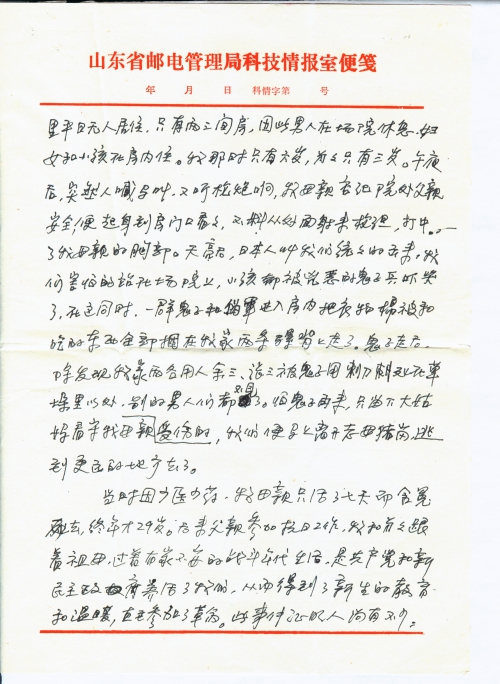 山东省邮电管理局科技情报室便笺
年 月 日 科情字第 号
里平日无人居住，只有两三间房，因此男人在场院休息，妇
女和小孩在房内住。我那时只有六岁，为之只有三岁。午夜
后，突然人喊马叫，又听枪炮响，我母亲在
安全便起身到房门口看之，不料从外面射来枪弹，打中
了我母亲的胸部。天亮后，日本人叫我们统统的出来，我
们害怕的站在场院上，小孩都被凶恶的鬼子兵吓哭
了，在这同时，一群鬼子和伪军进入房内把衣物棉被和
吃的东西全部捆在我家两条骡背上走了。鬼子走后，
才发现我家两名用人余三、 三被鬼子用刺刀 死在草
垛里以外，别的男人们都不见了。怕鬼子再来，只留下大姑
妈看守我母亲受伤的，我们便 离开 逃
到更远的地方去了。
当时因少医少药，我母亲只活了七天即含冤
死去，终年才29岁。后来父亲参加抗日工作，我和 跟
着祖母，过着有家不安的战斗年代生活，是共产党和新
民主政府养活了我们，从而得到了新生的教育
和温暖，直至参加了革命。此事件证明人尚有不少。